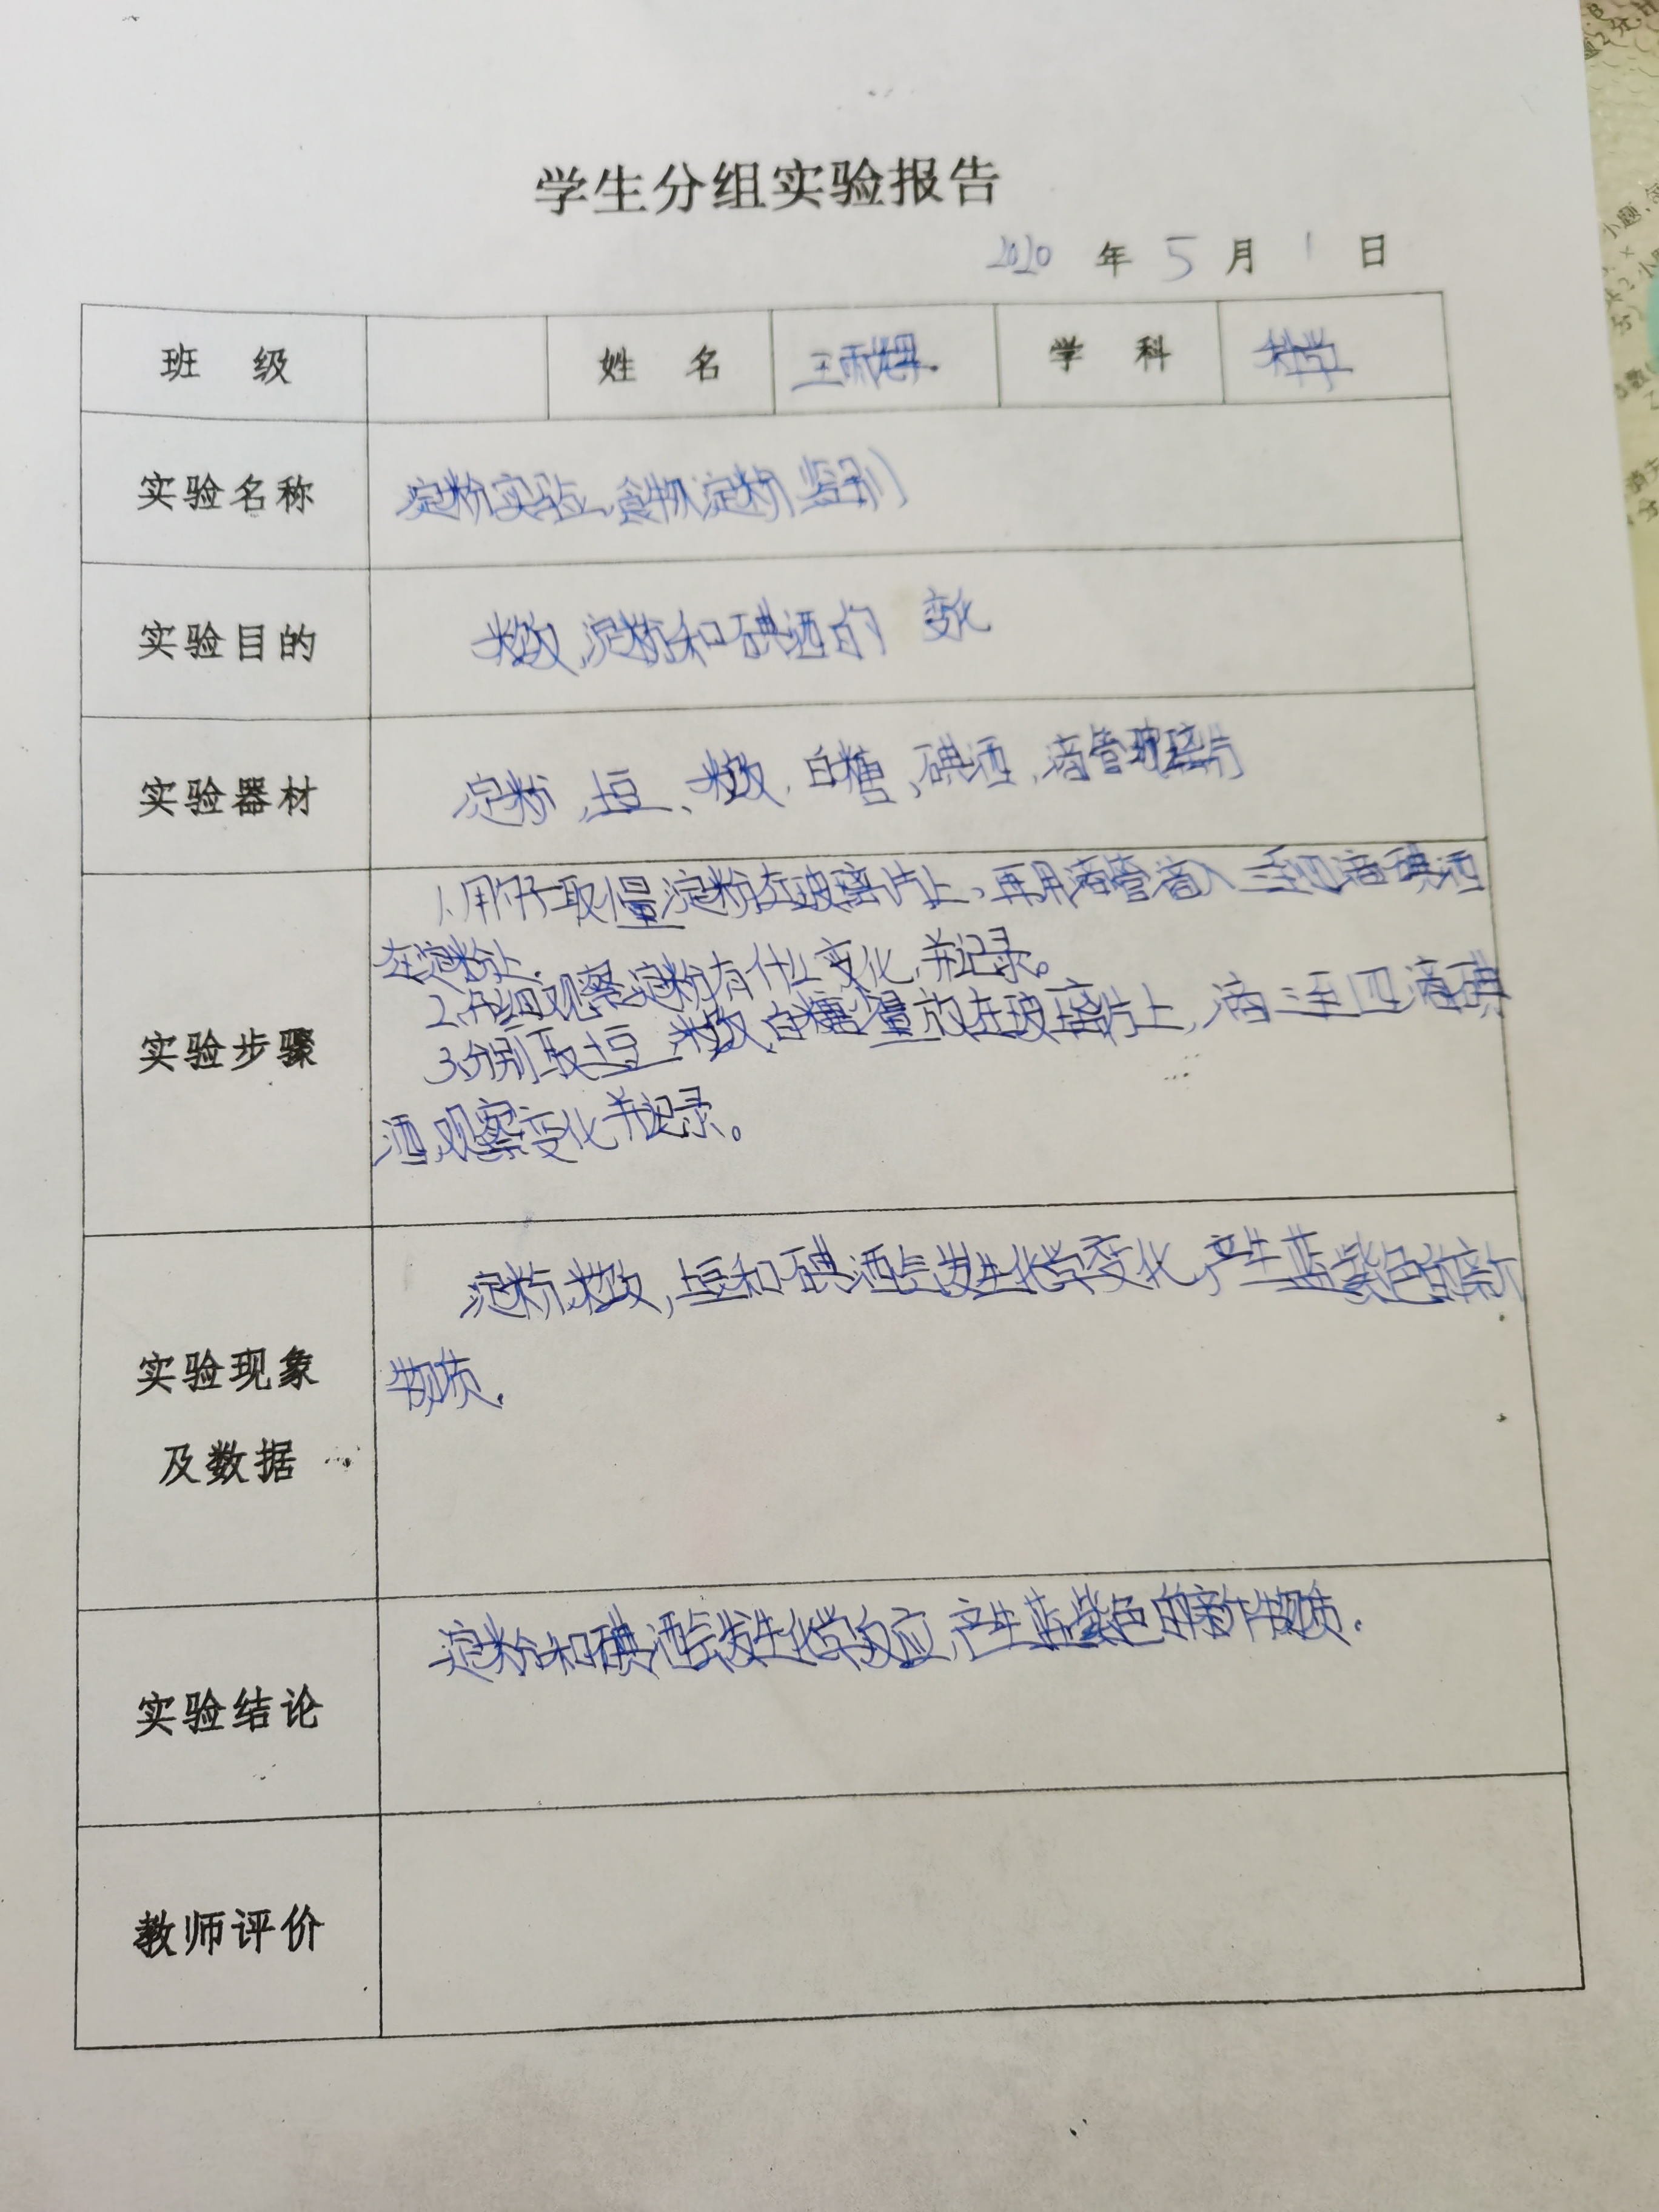 学生分组实验报告
2020 年 5 月 1 日
班 级 姓 名 王雨 学 科 科学
实验名称 淀粉实验(食物淀粉鉴别)
实验目的 米饭、淀粉和碘酒的变化
实验器材 淀粉、土豆、米饭、白糖、碘酒、滴管玻璃片
1、用勺子取少量淀粉在玻璃片上,再用滴管滴入三至四滴碘酒
在淀粉上.
2、仔细观察淀粉有什么变化,并记录。
实验步骤 3、分别取土豆、米饭、白糖少量放在玻璃片上,滴三至四滴碘
酒,观察变化并记录。
淀粉、米饭,土豆和碘酒会发生化学变化,产生蓝紫色的新
实验现象 物质.
及数据
淀粉和碘酒会发生化学反应,产生蓝紫色的新物质.
实验结论
教师评价